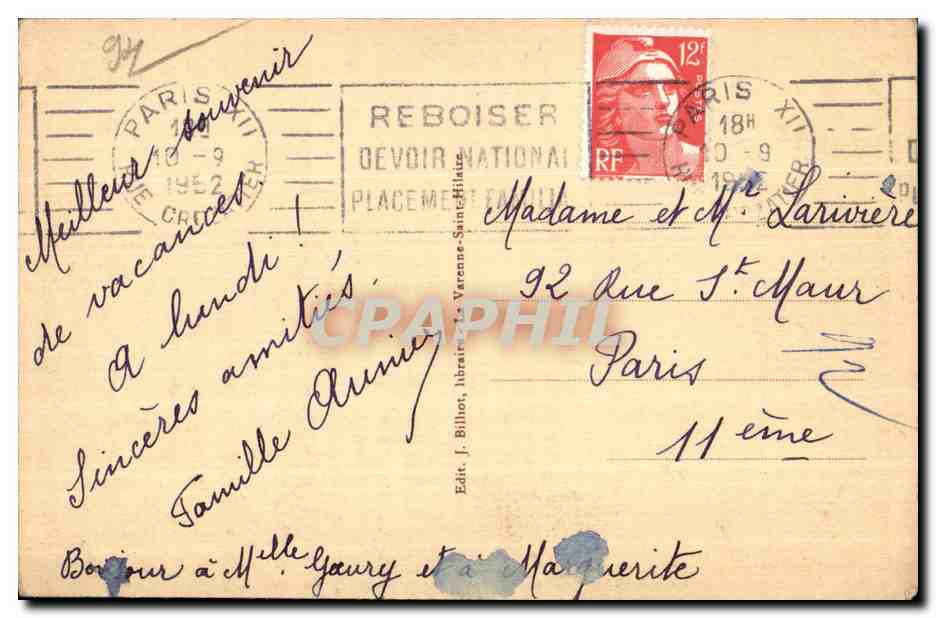 94
PARIS XII
18H
10 - 9
1952
RUE CROZATIER
REBOISER
DEVOIR NATIONAL
PLACEMENT FAMILIAL
12F
RF
POSTES
PARIS XII
18H
10 - 9
1952
RUE CROZATIER
Meilleur souvenir
de vacances
A lundi !
Sincères amitiés.
Famille
Bonjour à Melle. Gaury et à Marguerite
Edit. J. Bilhot, libraire, La Varenne-Saint-Hilaire
Madame et Mr Larivière
92 Rue St. Maur
Paris
11ème
CPAPHIL